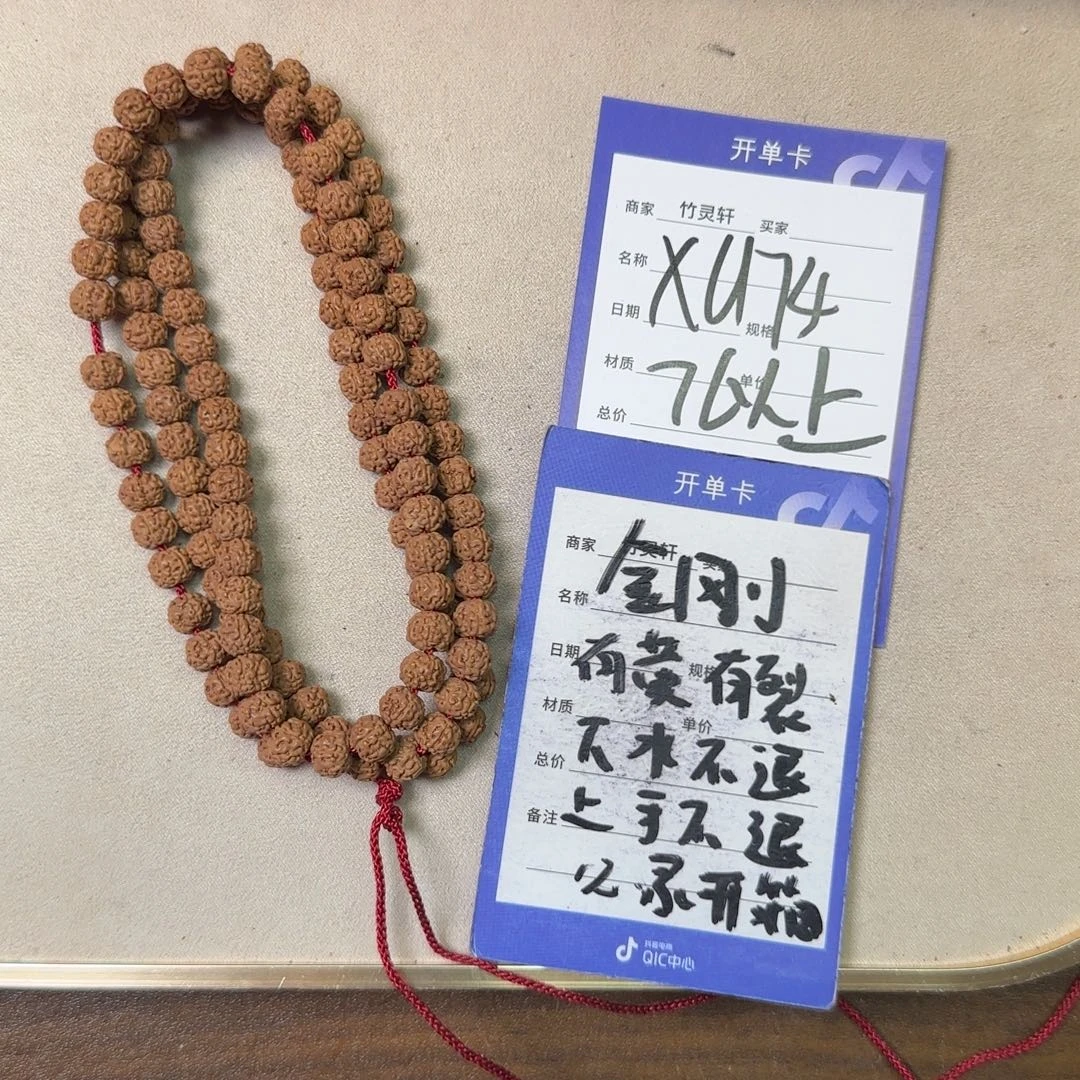 开单卡
商家 竹灵轩 买家
名称
XU74
日期 规格
材质 单价
76以上
总价
开单卡
商家 竹灵轩 买家
金刚
名称
日期 规格
有荧有裂
材质 单价
下水不退
总价
上手不退
备注
必录开箱
抖音电商
QIC中心